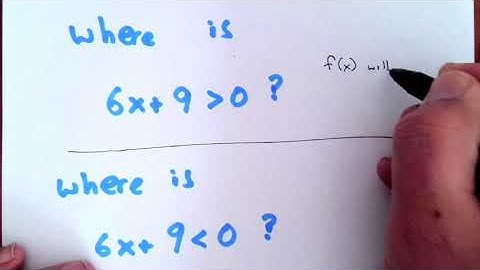 where is
f(x) will
6x+ 9 >0 ?
where is
6x+ 9 <0 ?